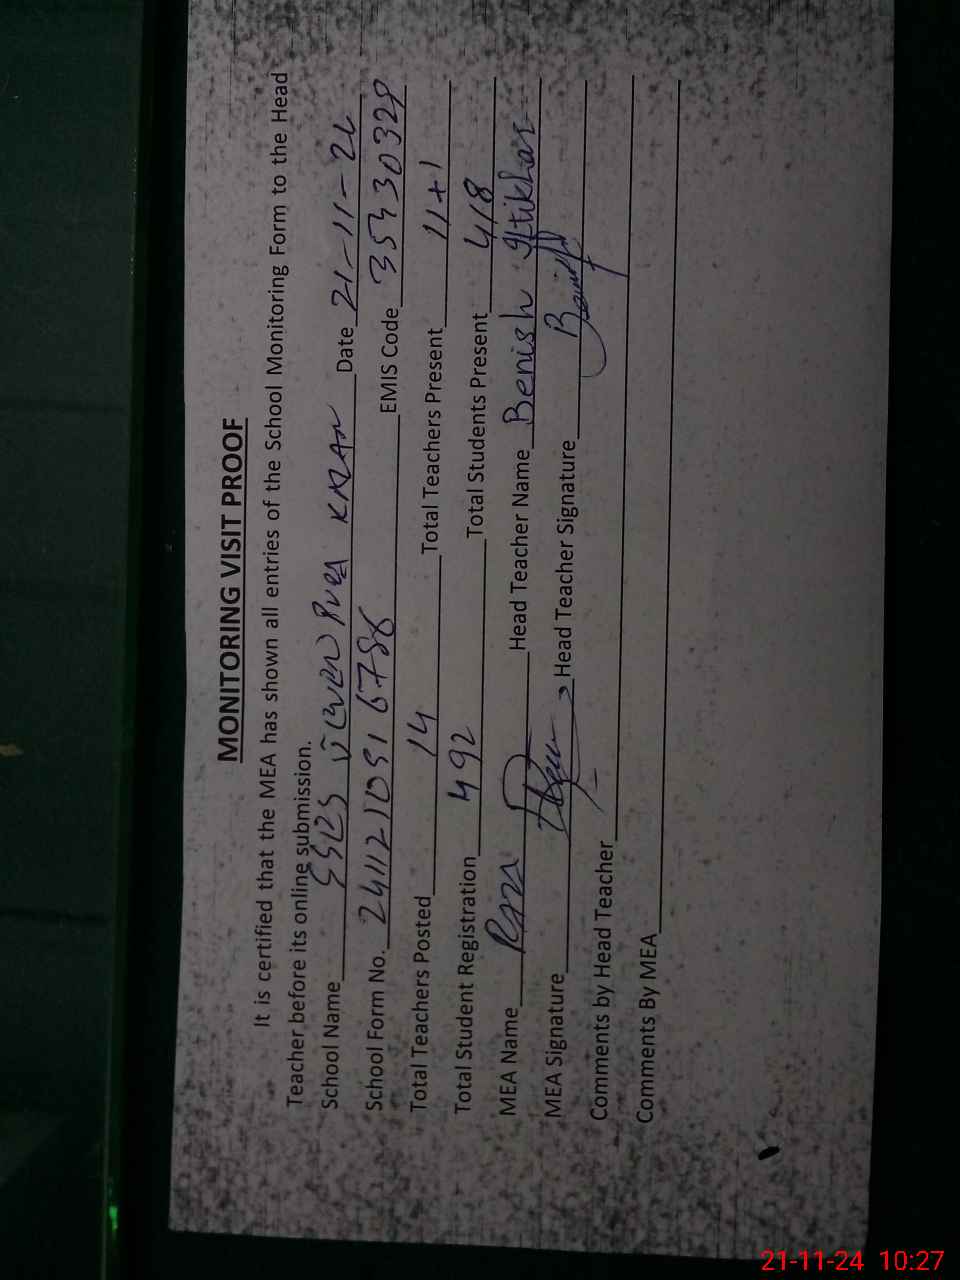 MONITORING VISIT PROOF
It is certified that the MEA has shown all entries of the School Monitoring Form to the Head
Teacher before its online submission.
School Name Date 21-11-24
School Form No. EMIS Code 35430328
Total Teachers Posted 14 Total Teachers Present 11+1
Total Student Registration 492 Total Students Present 418
MEA Name Raza Head Teacher Name Benish Iftikhar
MEA Signature Head Teacher Signature
Comments by Head Teacher
Comments By MEA
21-11-24 10:27